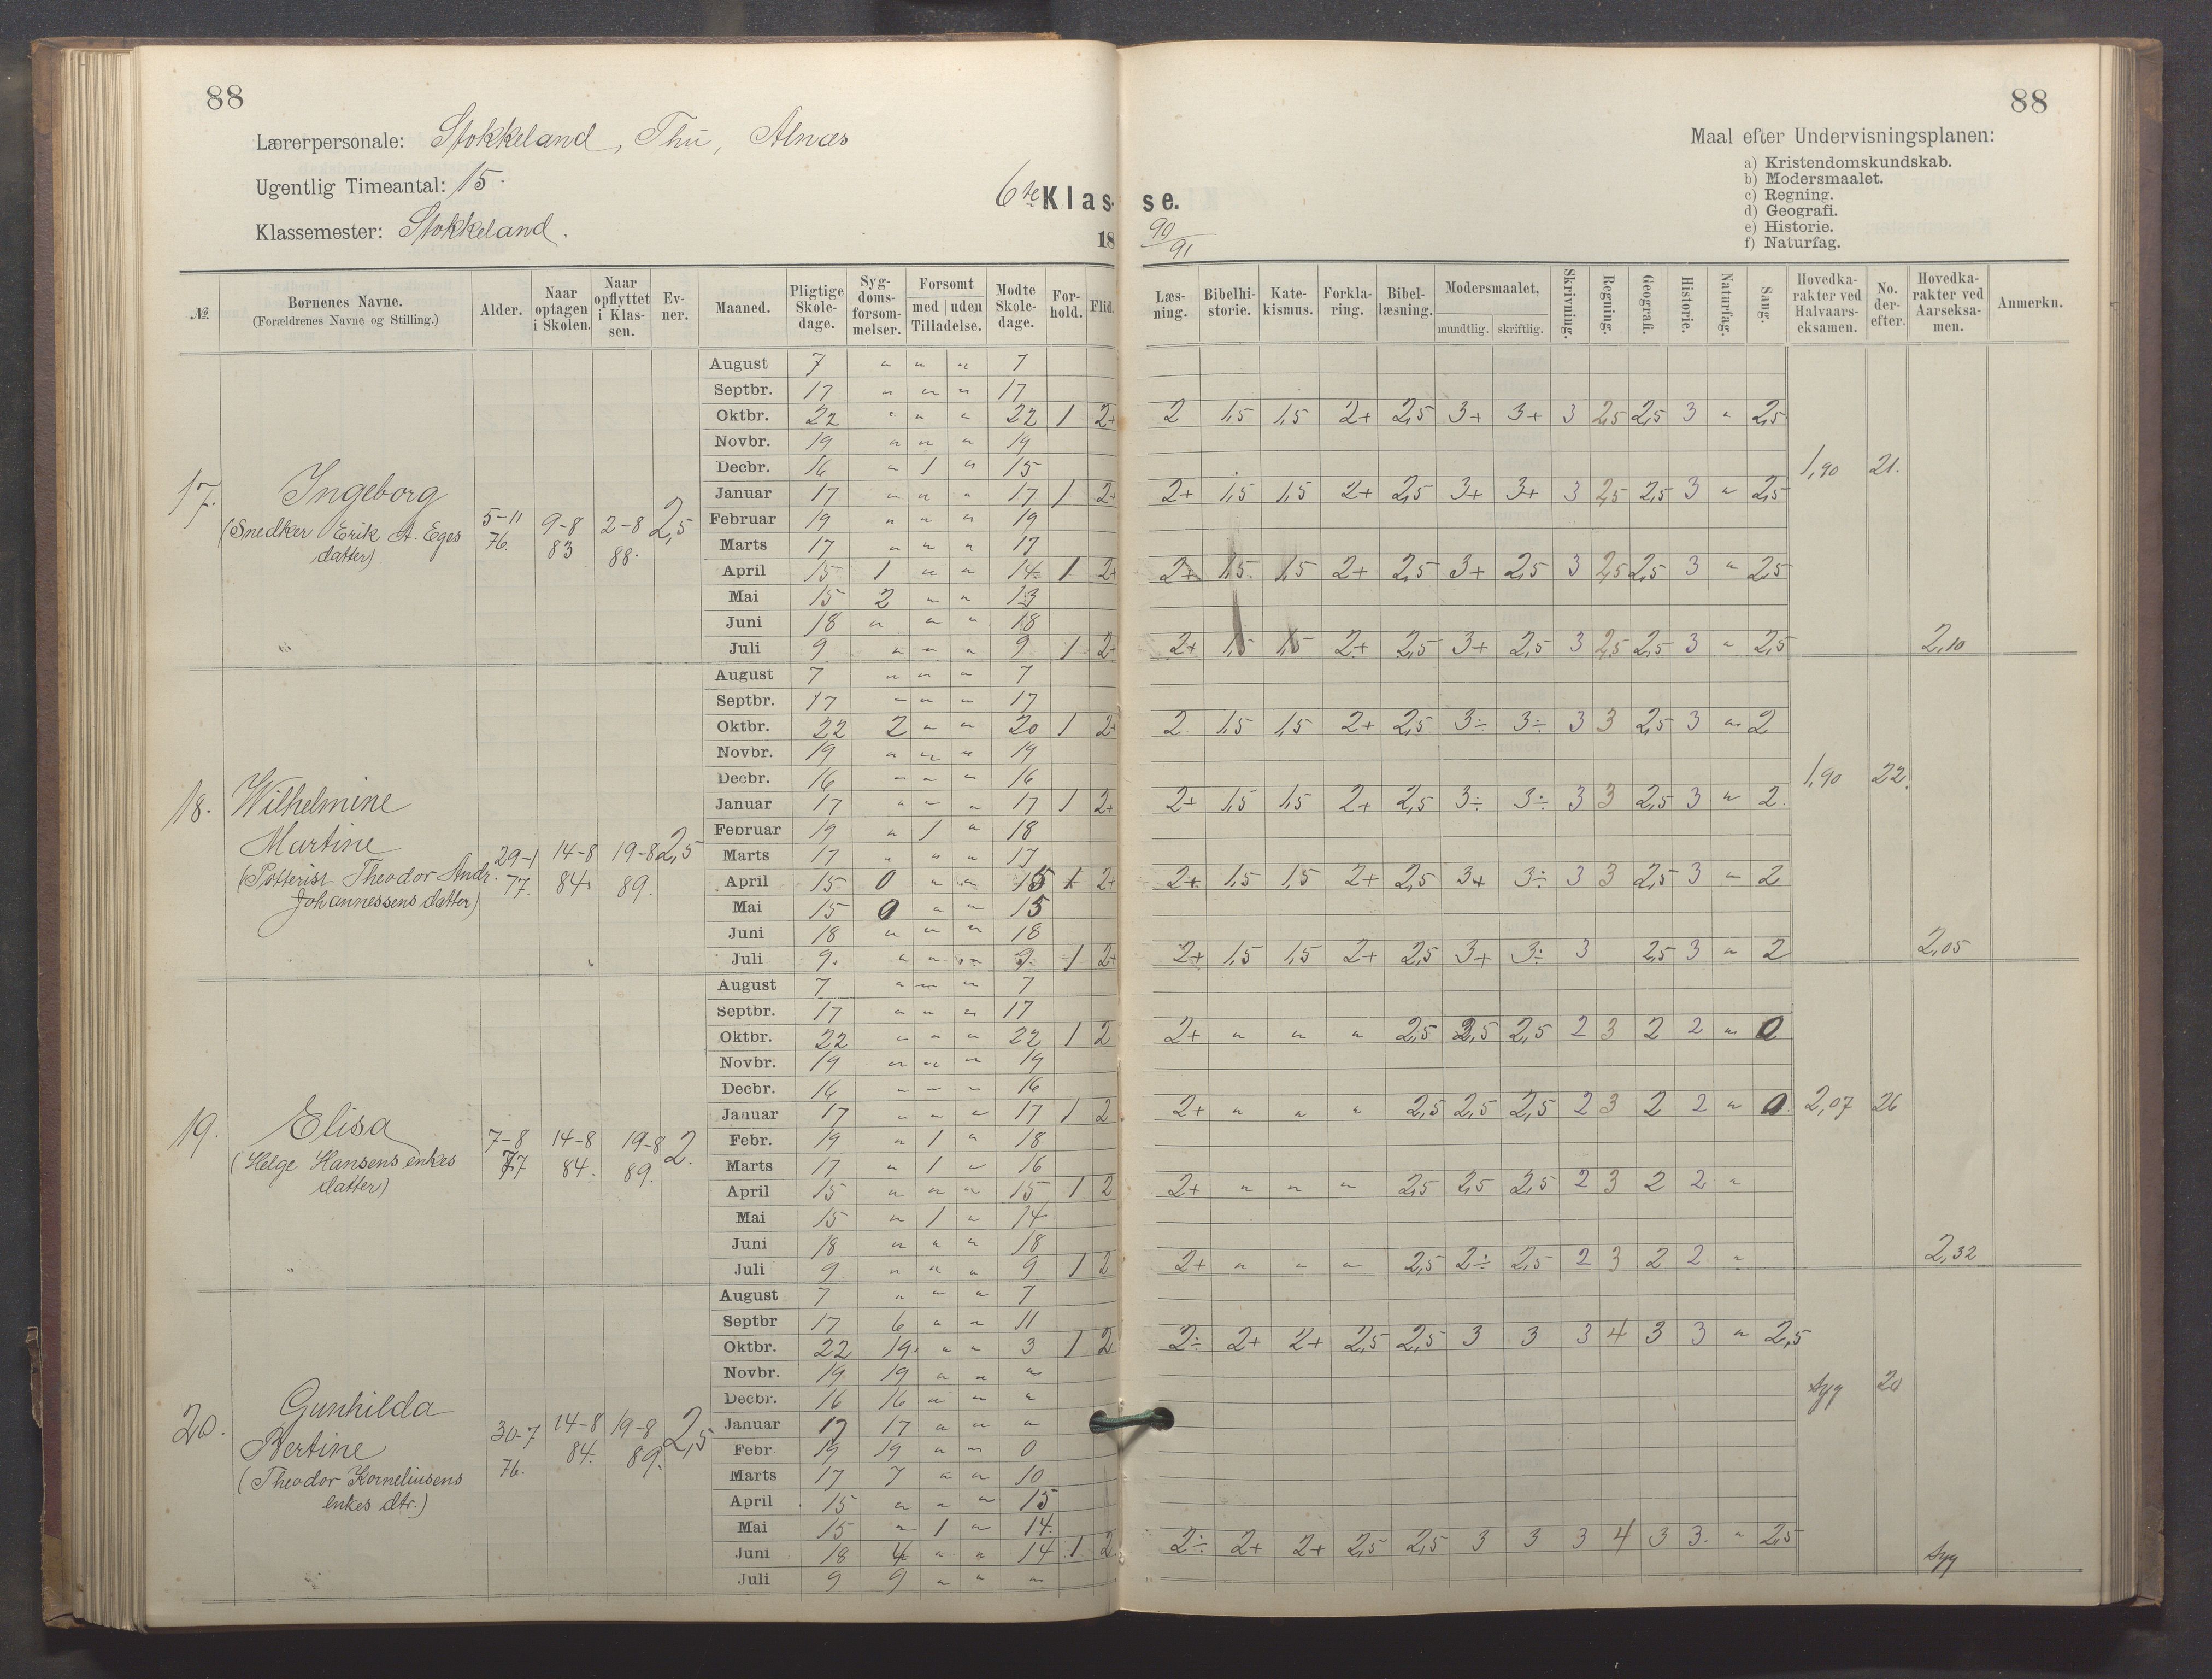 88
Lærerpersonale: Stokkeland, Thu, Alnæs
Ugentlig Timeantal: 15.
Klassemester: Stokkeland.
6te Klas-
18
88
Maal efter Undervisningsplanen:
a) Kristendomskundskab.
b) Modersmaalet.
c) Regning.
d) Geografi.
e) Historie.
f) Naturfag.
se.
90/91
№ Børnenes Navne. (Forældrenes Navne og Stilling.) Alder. Naar optagen i Skolen. Naar opflyttet i Klassen. Evner. Maaned. Pligtige Skoledage. Sygdomsforsømmelser. Forsømt med uden Tilladelse. Mødte Skoledage. Forhold. Flid. Læsning. Bibelhistorie. Katekismus. Forklaring. Bibellæsning. Modersmaalet, mundtlig. skriftlig. Skrivning. Regning. Geografi. Historie. Naturfag. Sang. Hovedkarakter ved Halvaarseksamen. No. derefter. Hovedkarakter ved Aarseksamen. Anmerkn.
17. Ingeborg
(Snedker Erik A. Eges
datter)
5-11 76. 9-8 83 2-8 88. 2,5
August 7 " " " 7
Septbr. 17 " " " 17
Oktbr. 22 " " " 22 1 2+ 2 1,5 1,5 2+ 2,5 3+ 3+ 3 2,5 2,5 3 " 2,5
Novbr. 19 " " " 19
Decbr. 16 " 1 " 15 1,90 21.
Januar 17 " " " 17 1 2+ 2+ 1,5 1,5 2+ 2,5 3+ 3+ 3 2,5 2,5 3 " 2,5
Februar 19 " " " 19
Marts 17 " " " 17
April 15 1 " " 14 1 2+ 2+ 1,5 1,5 2+ 2,5 3+ 2,5 3 2,5 2,5 3 " 2,5
Mai 15 2 " " 13
Juni 18 " " " 18
Juli 9 " " " 9 1 2+ 2+ 1,5 1,5 2+ 2,5 3+ 2,5 3 2,5 2,5 3 " 2,5 2,10
18. Wilhelmine
Martine
(Theodor Andr.
Johannessens datter)
29-1 77. 14-8 84 19-8 89. 2,5
August 7 " " " 7
Septbr. 17 " " " 17
Oktbr. 22 2 " " 20 1 2+ 2 1,5 1,5 2+ 2,5 3÷ 3÷ 3 3 2,5 3 " 2
Novbr. 19 " " " 19
Decbr. 16 " " " 16 1,90 22.
Januar 17 " " " 17 1 2+ 2+ 1,5 1,5 2+ 2,5 3÷ 3÷ 3 3 2,5 3 " 2.
Februar 19 " 1 " 18
Marts 17 " " " 17
April 15 0 " " 15 1 2+ 2+ 1,5 1,5 2+ 2,5 3+ 3÷ 3 3 2,5 3 " 2
Mai 15 0 " " 15
Juni 18 " " " 18
Juli 9. " " " 9. 1 2+ 2+ 1,5 1,5 2+ 2,5 3+ 3÷ 3 2,5 3 " 2 2,05
19. Elisa
(Helge Hansens enkes
datter)
7-8 77 14-8 84. 19-8 89. 2.
August 7 " " " 7
Septbr. 17 " " " 17
Oktbr. 22 " " " 22 1 2 2+ " " " 2,5 2,5 2,5 2 3 2 2 " 0
Novbr. 19 " " " 19
Decbr. 16 " " " 16
Januar 17 " " " 17 1 2 2+ " " " 2,5 2,5 2,5 2 3 2 2 " 0. 2,07 26
Febr. 19 " 1 " 18
Marts 17 " 1 " 16
April 15 " " " 15 1 2 2+ " " " 2,5 2,5 2,5 2 3 2 2 "
Mai 15 " 1 " 14
Juni 18 " " " 18
Juli 9 " " " 9 1 2 2+ " " " 2,5 2÷ 2,5 2 3 2 2 " 2,32
20. Gunhilda
Bertine
(Theodor Korneliusens
enkes dtr.)
30-7 76. 14-8 84. 19-8 89. 2,5
August 7 " " " 7
Septbr 17 6 " " 11
Oktbr. 22 19. " " 3 1 2 2÷ 2+ 2+ 2,5 2,5 3 3 3 4 3 3 " 2,5
Novbr. 19 19 " " "
Decbr. 16 16 " " " syg 20
Januar 17 17 " " "
Febr. 19 19 " " 0
Marts 17 7 " " 10
April 15 " " " 15
Mai 15 " 1 " 14.
Juni 18 4 " " 14 1 2 2÷ 2+ 2+ 2,5 2,5 3 3 3 4 3 3. " 2,5
Juli 9 9 " " " syg